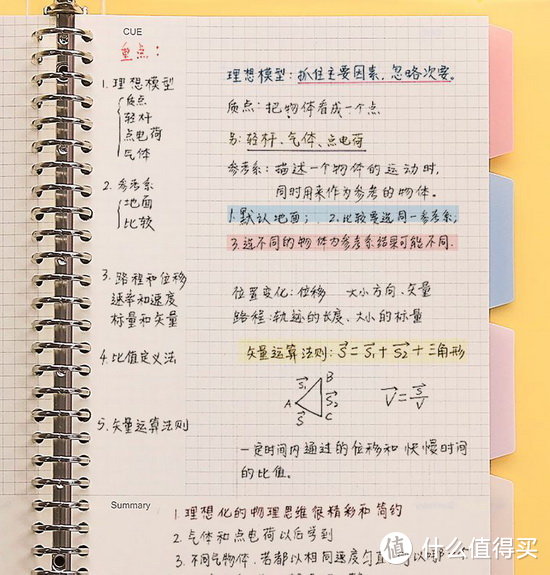 CUE
重点：
1. 理想模型
质点
轻杆
点电荷
气体
2. 参考系
地面
比较
3. 路程和位移
速率和速度
标量和矢量
4. 比值定义法
5. 矢量运算法则
理想模型：抓住主要因素，忽略次要。
质点：把物体看成一个点
另：轻杆、气体、点电荷
参考系：描述一个物体的运动时，
同时用来作为参考的物体。
1. 默认地面； 2. 比较要选同一参考系；
3. 选不同的物体为参考系结果可能不同.
位置变化：位移 大小方向、矢量
路程：轨迹的长度、大小的标量
矢量运算法则：S=S₁+S₂+三角形
S₁ B
A S₂ V=S/V
S C
一定时间内通过的位移和快慢时间
的比值。
Summary
1. 理想化的物理思维很精彩和简约
2. 气体和点电荷以后学到
3. 不同气物体，若都以相同速度匀直
值 什么值得买